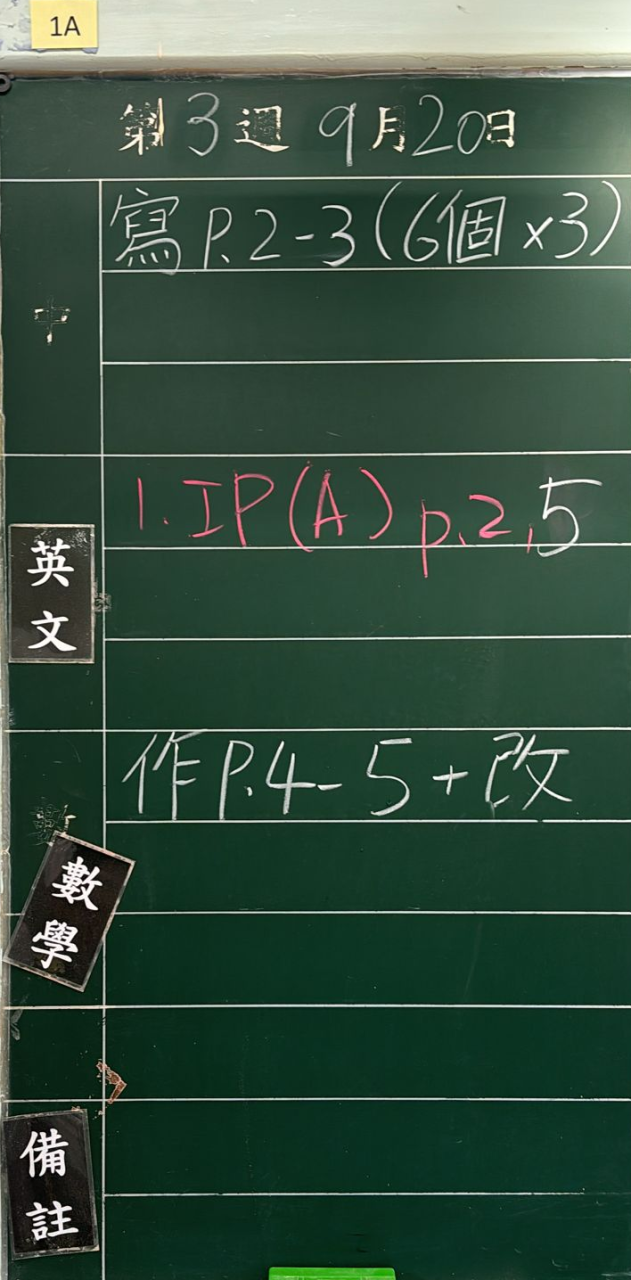 1A
第3週 9月20日
寫P.2-3(6個×3)
中
1.IP(A) p.2,5
英文
作P.4-5+改
數學
備註